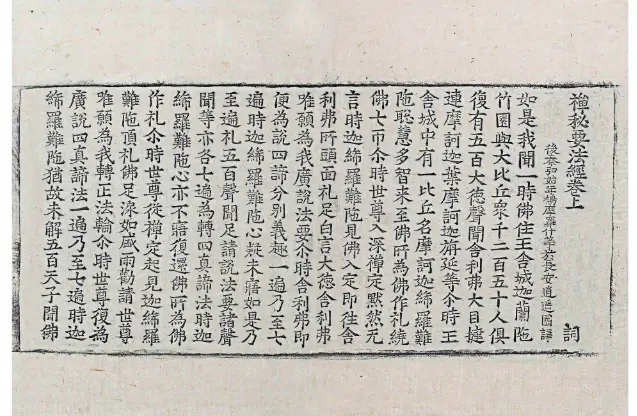 禪秘要法經卷上
詞
後秦弘始年鳩摩羅什等於長安逍遙園譯
如是我聞一時佛住王舍城迦蘭陁
竹園與大比丘衆千二百五十人俱
復有五百大德聲聞舍利弗大目揵
連摩訶迦葉摩訶迦旃延等尒時王
舍城中有一比丘名摩訶迦絺羅難
陁聡慧多智来至佛所為佛作礼繞
佛七帀尒時世尊入深禪定默然无
言時迦絺羅難陁見佛入定即往舍
利弗所頭面札足白言大德舍利弗
唯願為我廣說法要尒時舍利弗即
便為說四諦分別義趣一遍乃至七
遍時迦絺羅難陁心疑未寤如是乃
至遍礼五百聲聞足請說法要諸聲
聞等亦各七遍為轉四真諦法時迦
絺羅難陁心亦不寤復還佛所為佛
作礼尒時世尊從禪定起見迦絺羅
難陁頂礼佛足淚如盛雨勸請世尊
唯願為我轉正法輪尒時世尊復為
廣說四真諦法一遍乃至七遍時迦
絺羅難陁猶故未解五百天子聞佛